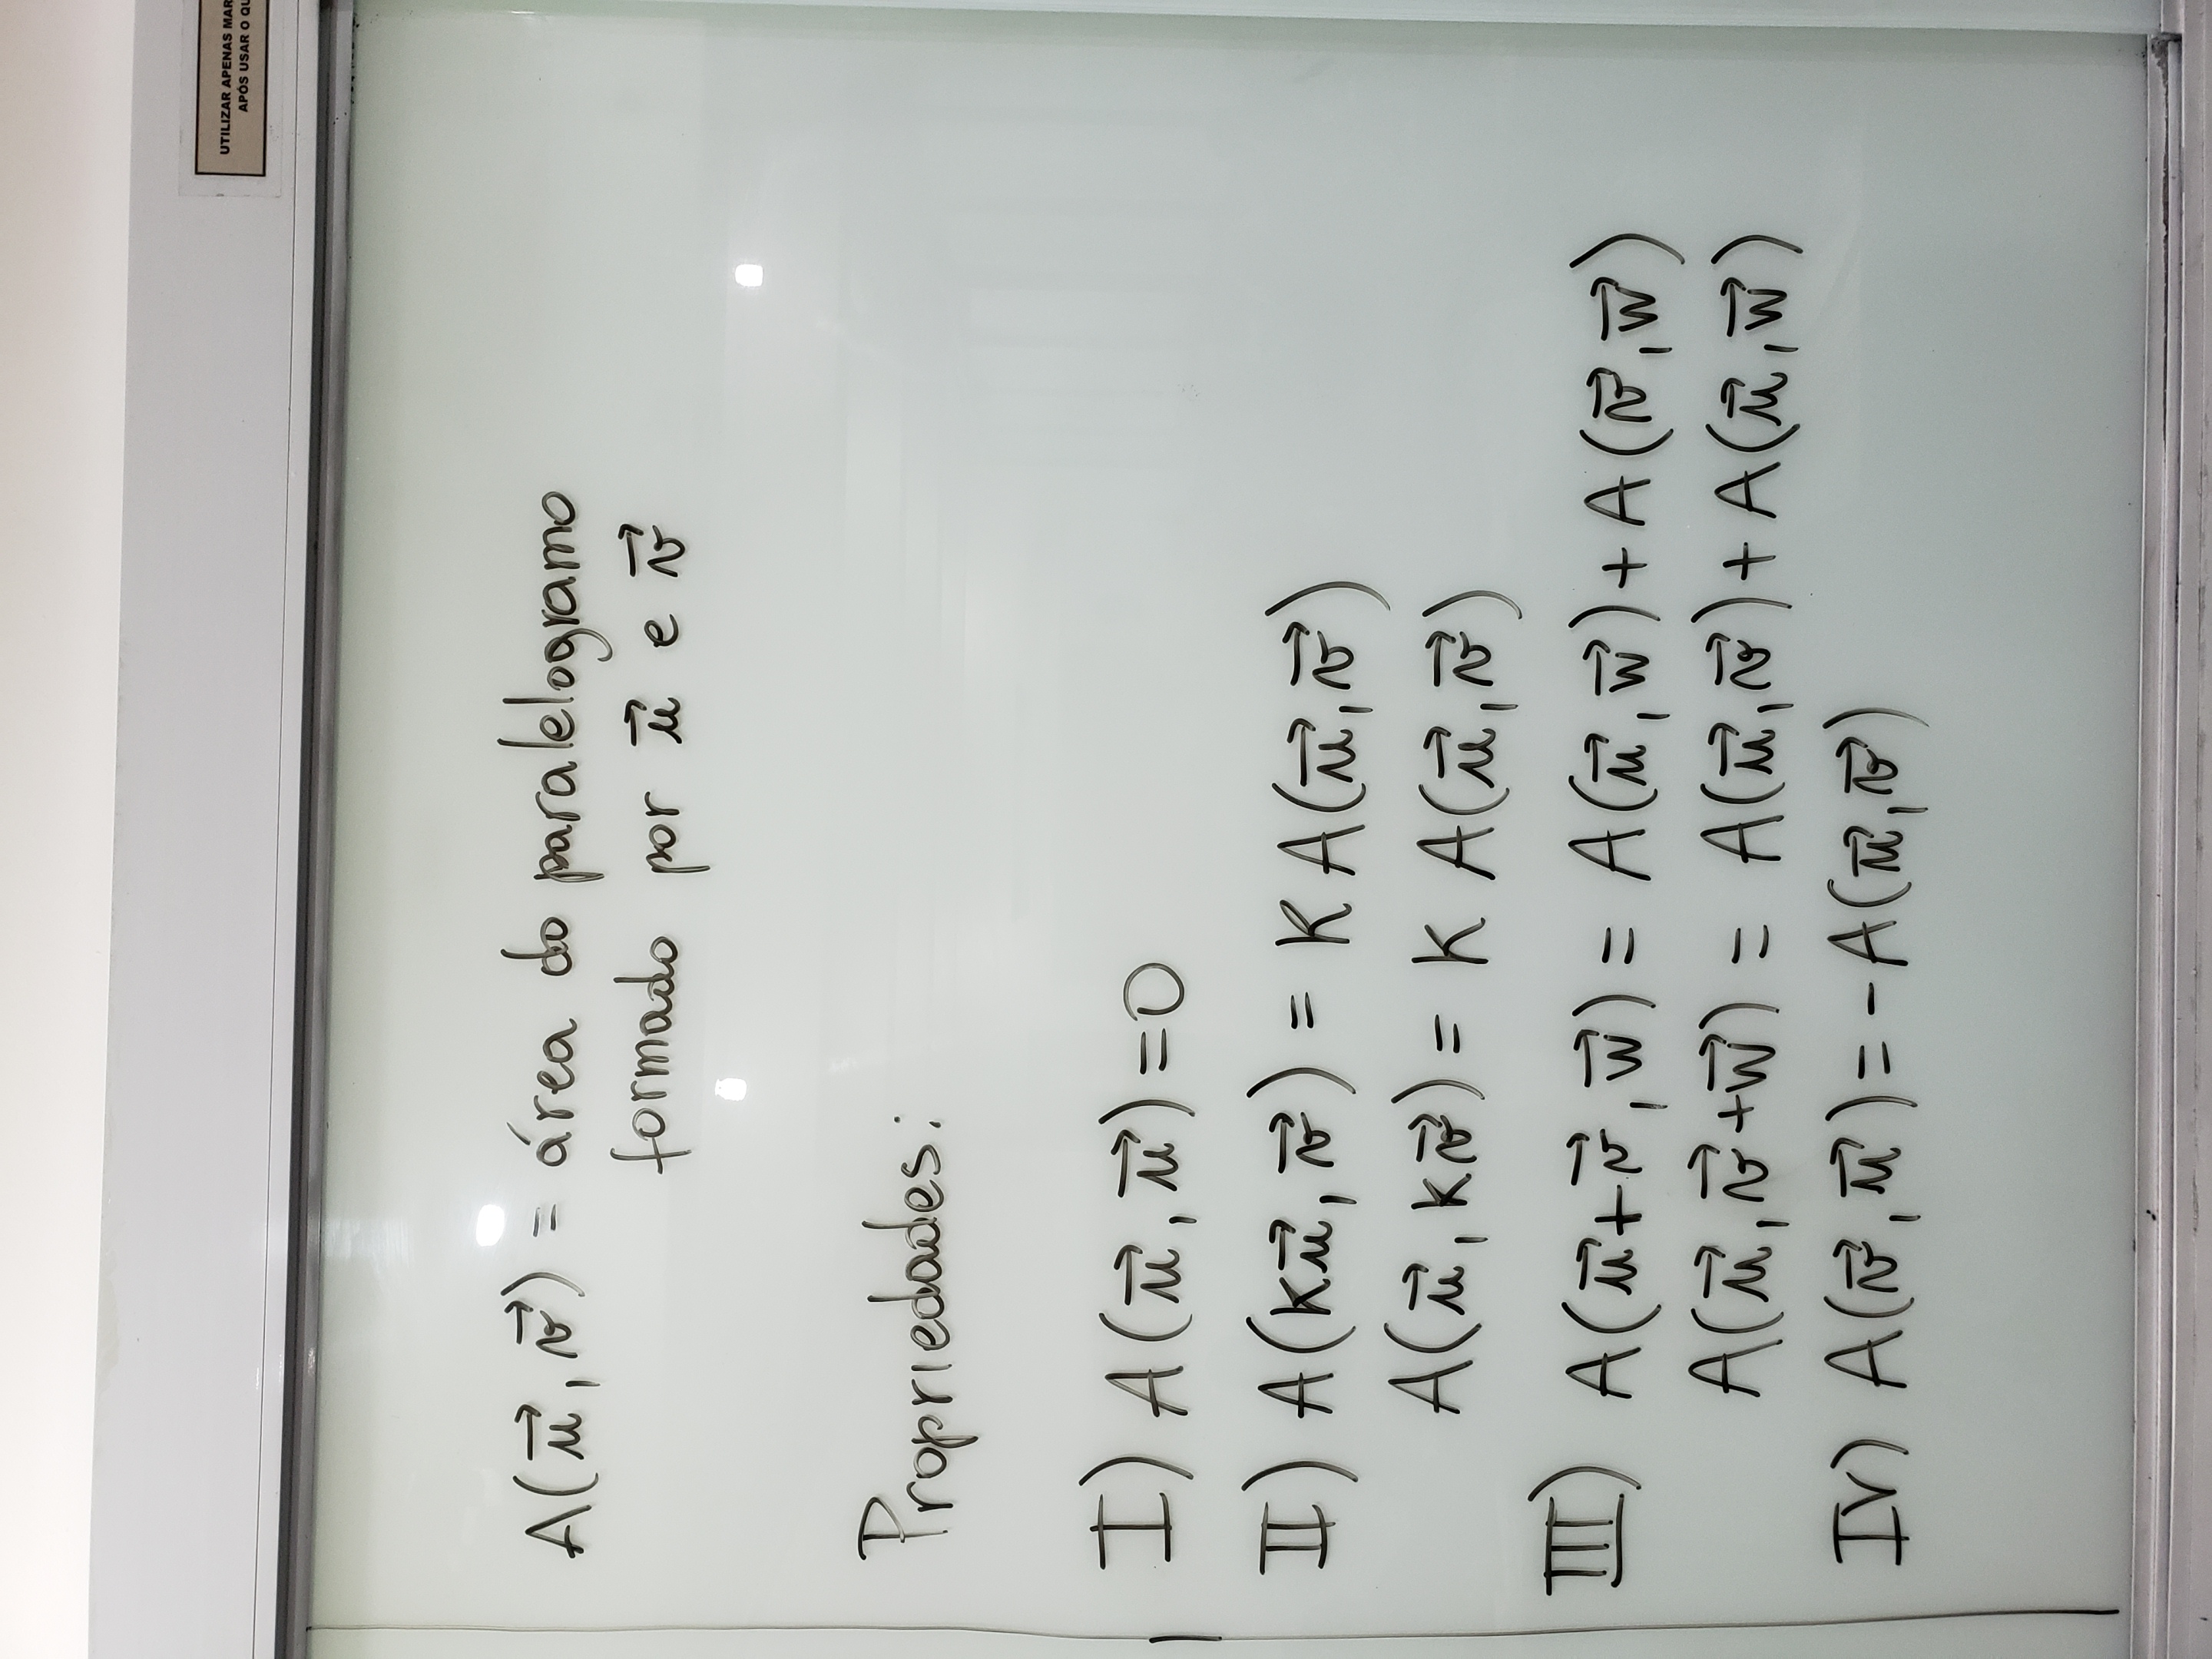 UTILIZAR APENAS MAR
APÓS USAR O QU
A(u⃗, v⃗) = área do paralelogramo
formado por u⃗ e v⃗
Propriedades:
I) A(u⃗, u⃗) = 0
II) A(Ku⃗, v⃗) = K A(u⃗, v⃗)
A(u⃗, Kv⃗) = K A(u⃗, v⃗)
III) A(u⃗+v⃗, w⃗) = A(u⃗, w⃗) + A(v⃗, w⃗)
A(u⃗, v⃗+w⃗) = A(u⃗, v⃗) + A(u⃗, w⃗)
IV) A(v⃗, u⃗) = -A(u⃗, v⃗)